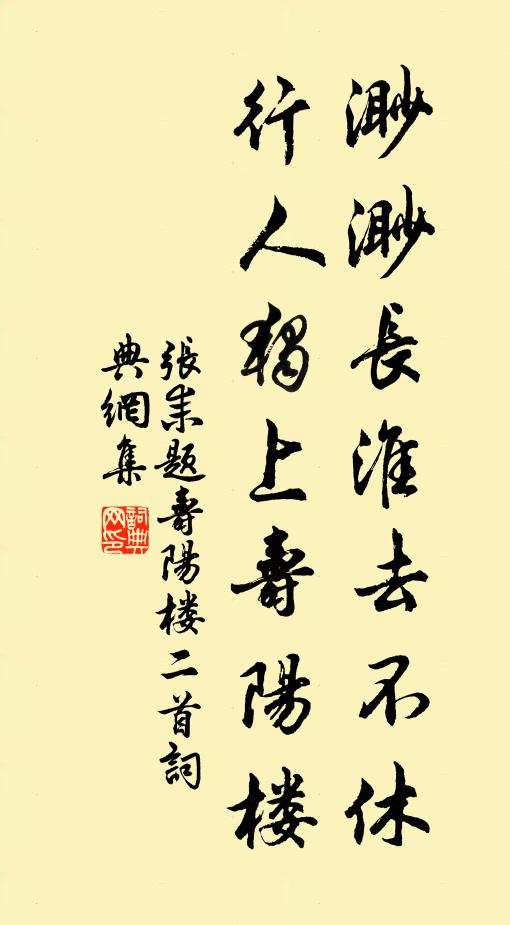 渺渺長淮去不休
行人獨上壽陽楼
張耒題壽陽楼二首詞
典網集
詞典
网印